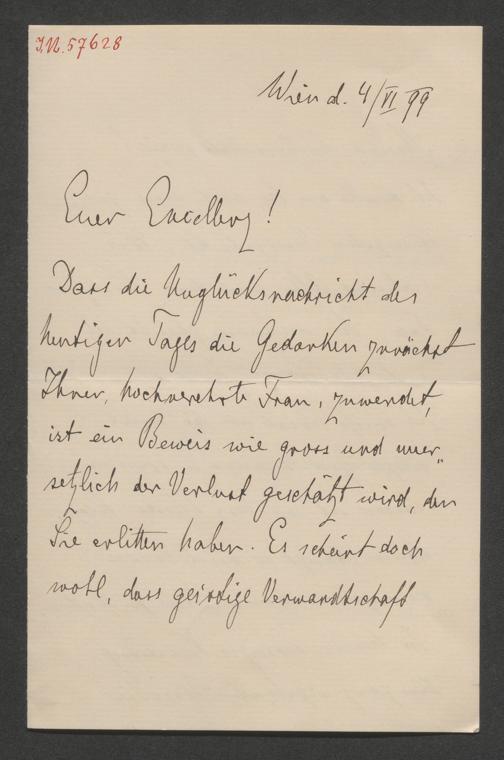 I.N. 57628
Wien d. 4/VI 99
Euer Excellenz!
Dass die Unglücksnachricht des
heutigen Tages die Gedanken zunächst
Ihnen, hochverehrte Frau, zuwendet,
ist ein Beweis wie gross und uner„
setzlich der Verlust geschätzt wird, den
Sie erlitten haben. Es scheint doch
wohl, dass geistige Verwandtschaft